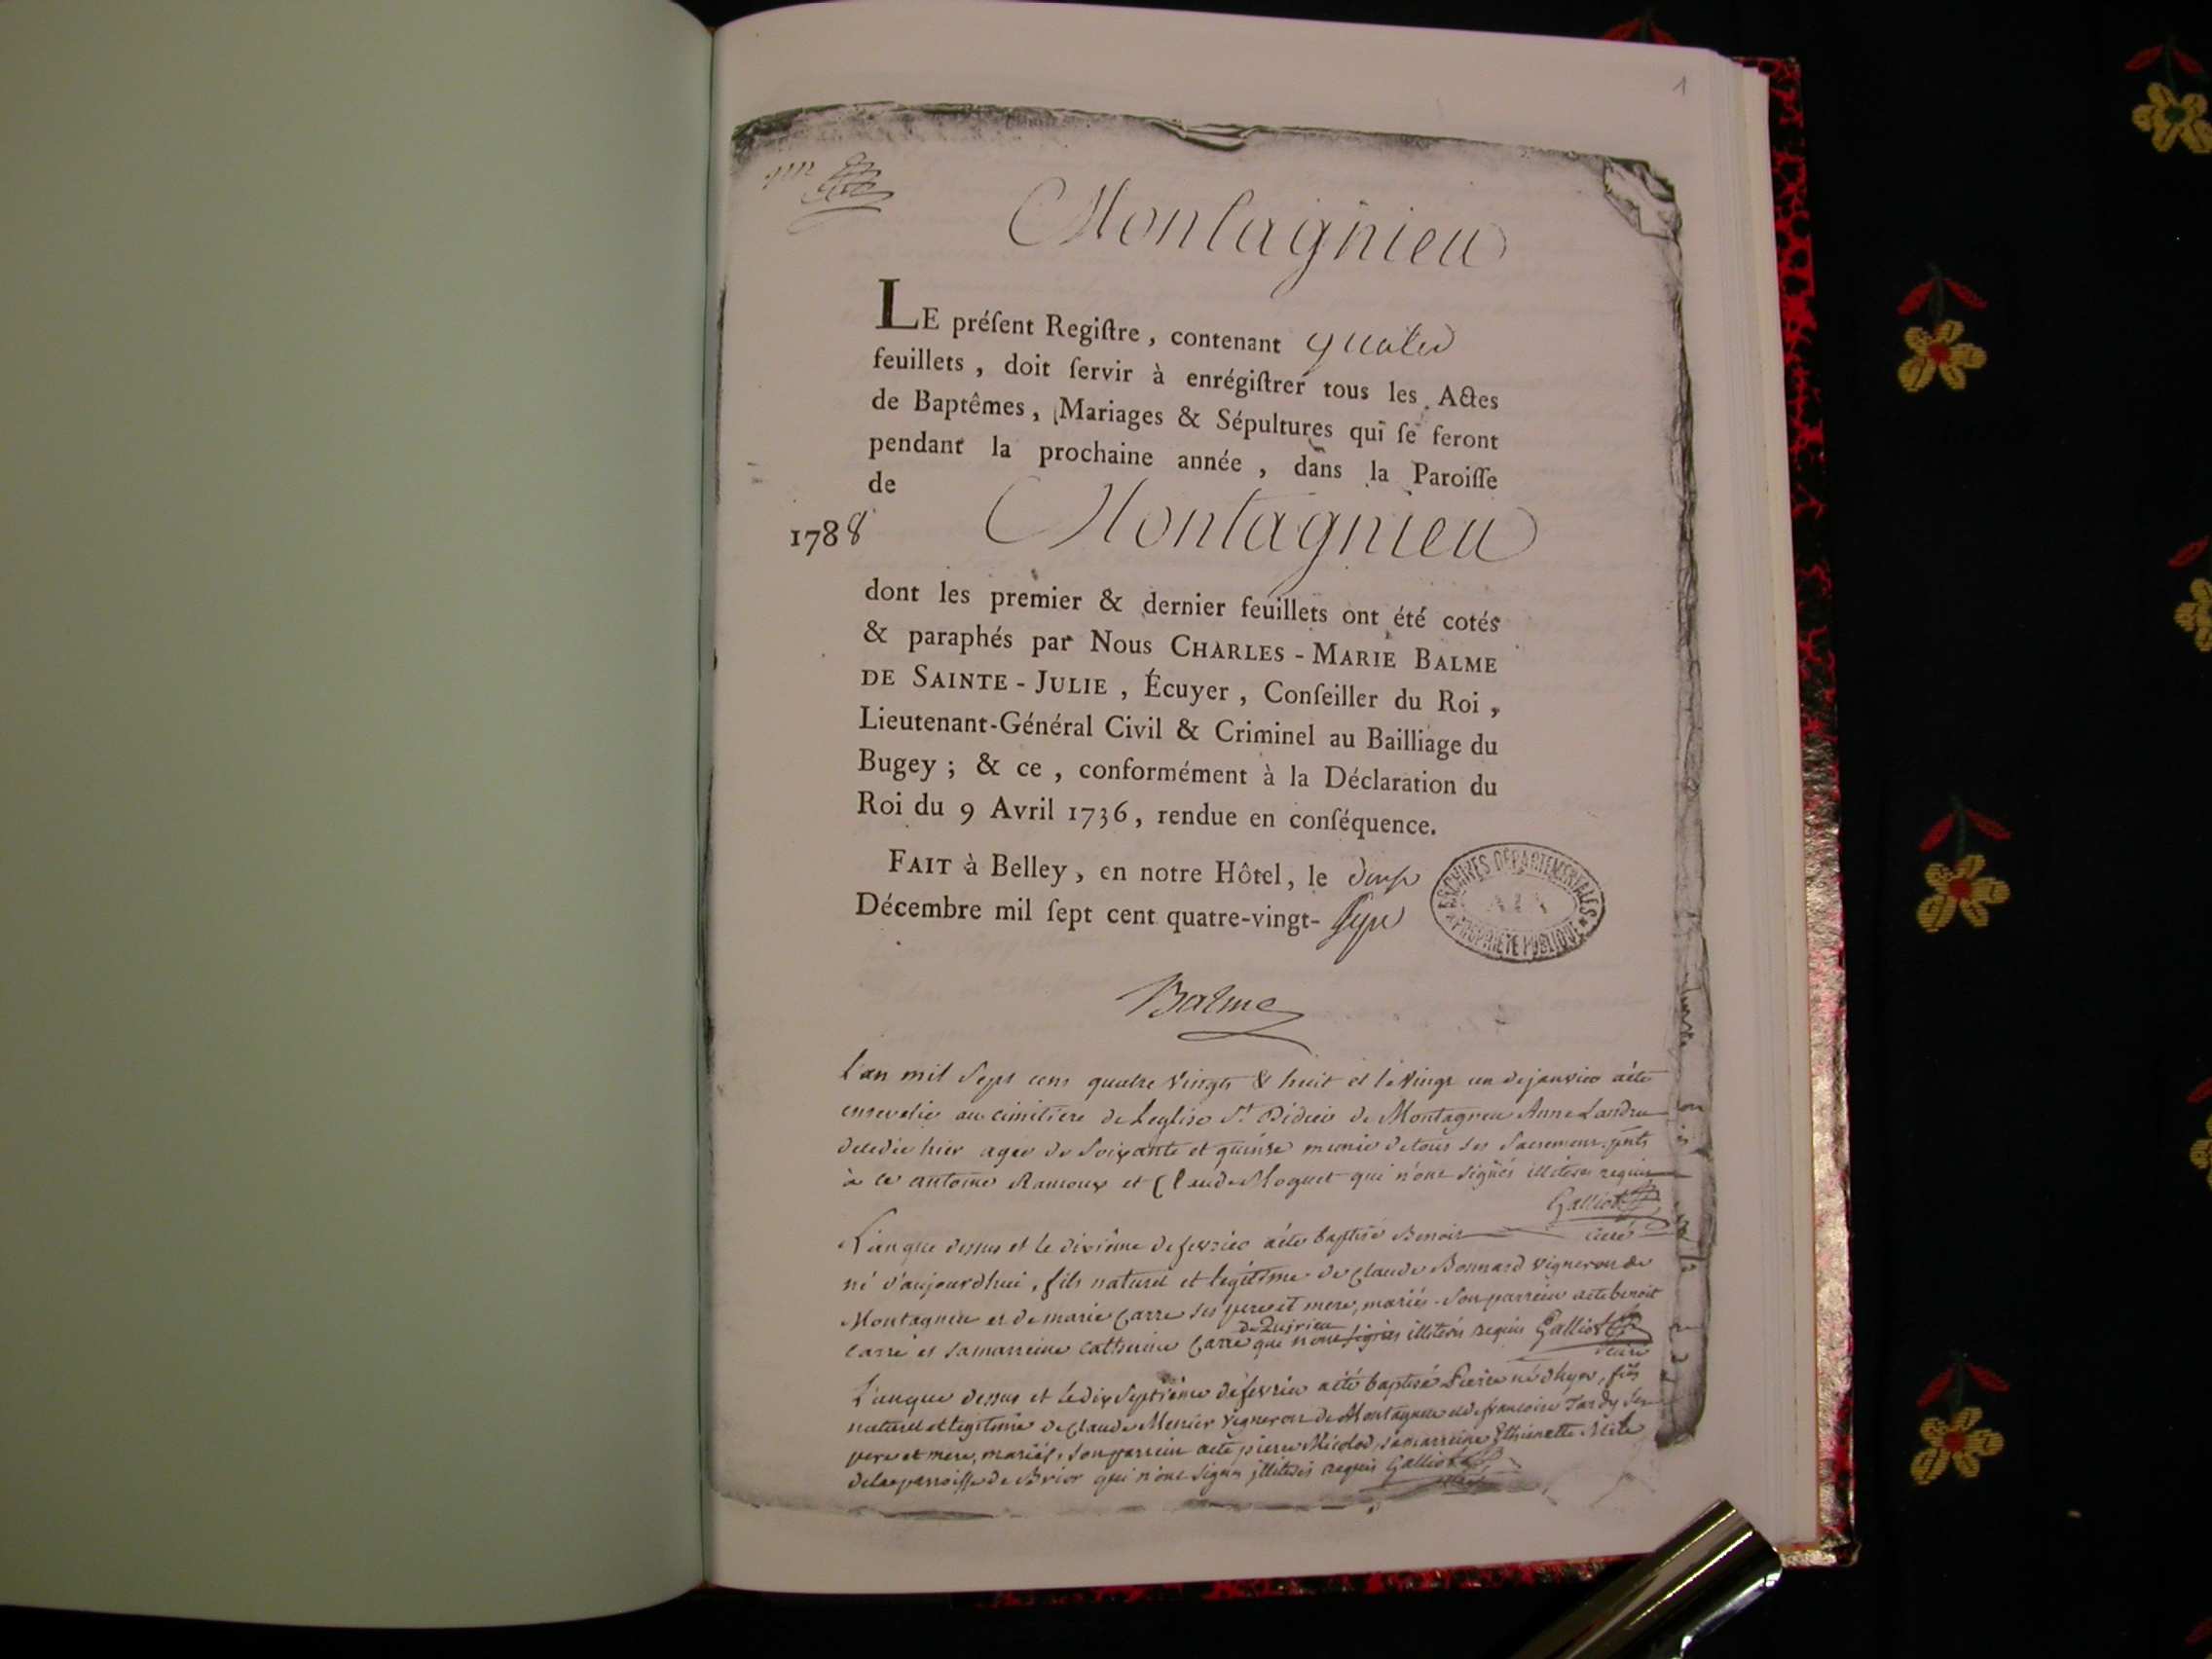 1
Montagnieu
LE préſent Regiſtre, contenant quatre
feuillets, doit ſervir à enrégiſtrer tous les Actes
de Baptêmes, Mariages & Sépultures qui ſe feront
pendant la prochaine année, dans la Paroiſſe
de
1788 Montagnieu
dont les premier & dernier feuillets ont été cotés
& paraphés par Nous CHARLES-MARIE BALME
DE SAINTE-JULIE, Écuyer, Conſeiller du Roi,
Lieutenant-Général Civil & Criminel au Bailliage du
Bugey; & ce, conformément à la Déclaration du
Roi du 9 Avril 1736, rendue en conſéquence.
FAIT à Belley, en notre Hôtel, le
Décembre mil ſept cent quatre-vingt-
ARCHIVES DÉPARTEMENTALES AIN PROPRIÉTÉ PUBLIQUE
Balme
l'an mil sept cens quatre vingts & huit et le vingt un de janvier aété
ensevelie au cimitiere de leglise St Didier de Montagneu Anne Landru
decedée hier agee de soixante et quinse munie de tous ses sacremens. pnts
à ce antoine Ramoux et Claude Moguet qui n'ont signés illiteres requis
Galliot
curé
L'an que dessus et le dixième de fevrier aété baptisé Benoit
né d'aujourdhui, fils naturel et legitime de Claude Bonnard vigneron de
Montagneu et de marie Carre ses pere et mere, mariés. Son parrein aété benoit
carre et sa marreine catherine Carre que n'ont signés illiterés requis Galliot
curé
L'an que dessus et le dix septième de fevrier aété baptisé Pierre né d'hyer, fils
naturel et legitime de Claude Menier vigneron de Montagneu et de francoise Tardy ses
pere et mere, mariés, son parrein aété pierre Micolod, sa marreine Ethienette
de la parroisse de Brior qui n'ont signes illiterés requis Galliot